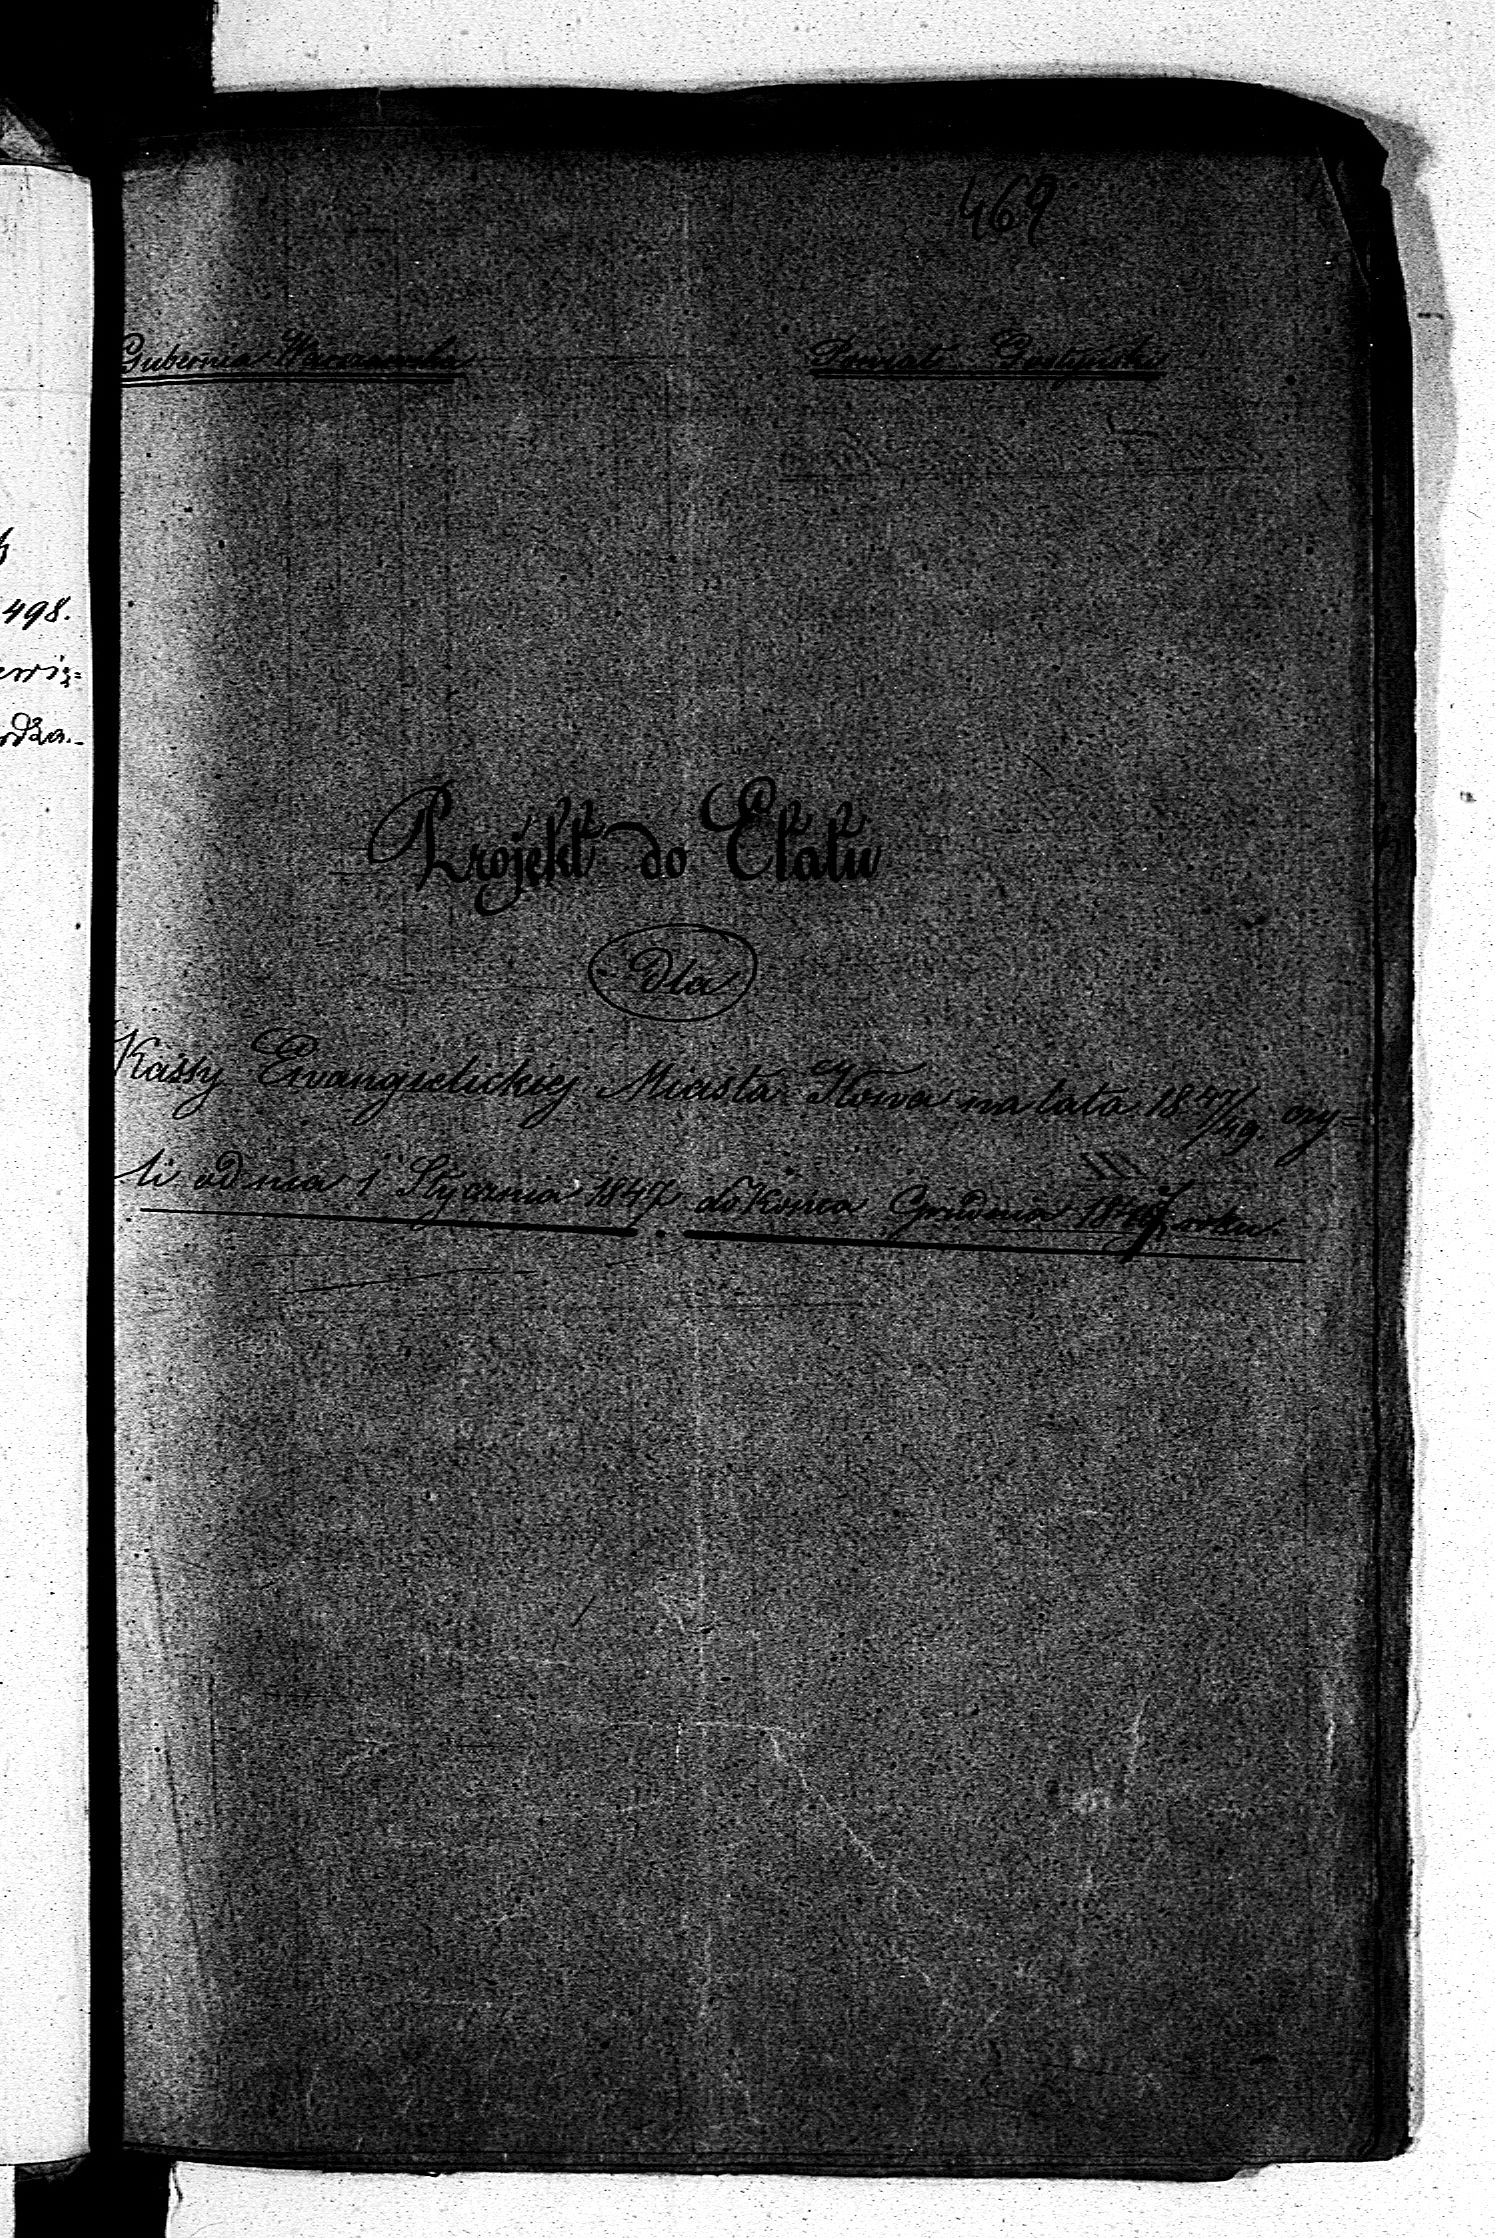 469
Gubernia Warszawska
Powiat Gostyński
498.
Projekt do Etatu
Dla
Kassy Ewangielickiej Miasta Kowa na lata 1847/49. czy=
li od nia 1 Stycznia 1847 do Końca Grudnia 1849 roku.